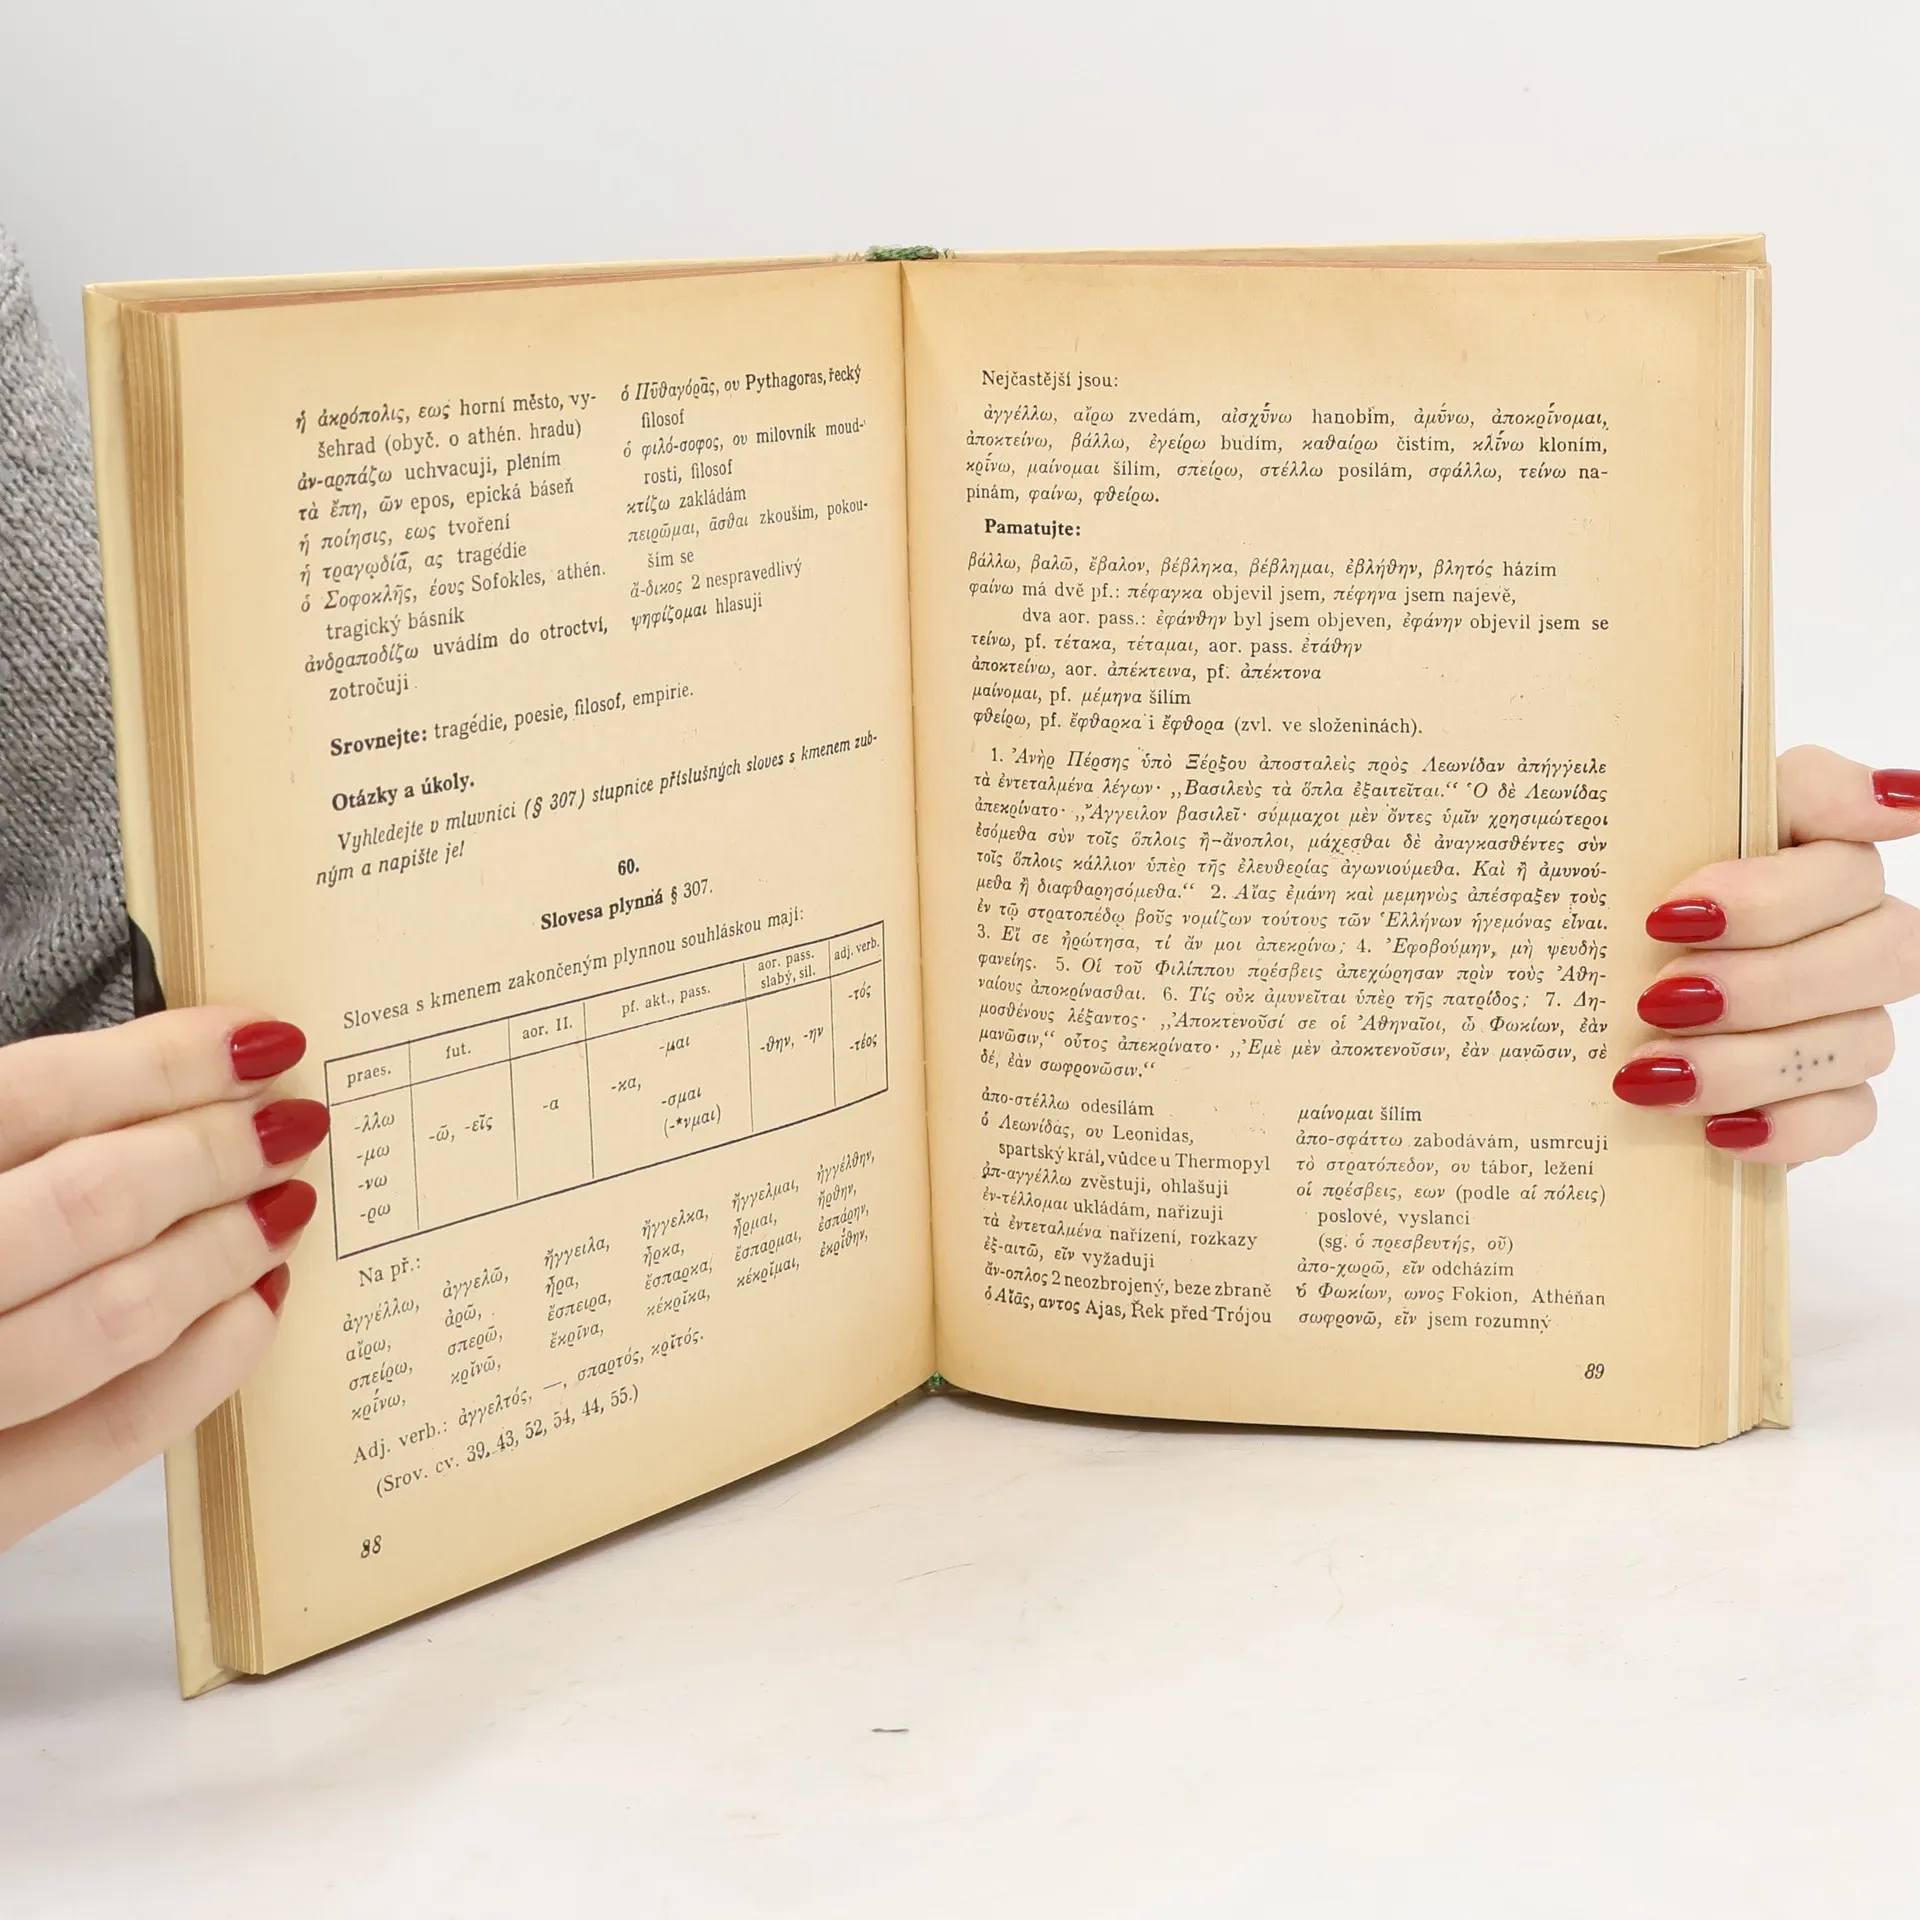 ἡ ἀκρόπολις, εως horní město, vy-
šehrad (obyč. o athén. hradu)
ἀν-αρπάζω uchvacuji, plením
τὰ ἔπη, ῶν epos, epická báseň
ἡ ποίησις, εως tvoření
ἡ τραγῳδίᾱ, ας tragédie
ὁ Σοφοκλῆς, έους Sofokles, athén.
tragický básník
ἀνδραποδίζω uvádím do otroctví,
zotročuji
ὁ Πῡθαγόρᾱς, ου Pythagoras, řecký
filosof
ὁ φιλό-σοφος, ου milovník moud-
rosti, filosof
κτίζω zakládám
πειρῶμαι, ᾶσθαι zkouším, pokou-
ším se
ἄ-δικος 2 nespravedlivý
ψηφίζομαι hlasuji
Srovnejte: tragédie, poesie, filosof, empirie.
Otázky a úkoly.
Vyhledejte v mluvnici (§ 307) stupnice příslušných sloves s kmenem zub-
ným a napište je!
60.
Slovesa plynná § 307.
Slovesa s kmenem zakončeným plynnou souhláskou mají:
praes. fut. aor. II. pf. akt., pass. aor. pass. slabý, sil. adj. verb.
-λλω -μω -νω -ρω
-ῶ, -εῖς
-α
-κα,
-μαι
-σμαι
(-*νμαι)
-θην, -ην
-τός
-τέος
Na př.:
ἀγγέλλω, ἀγγελῶ, ἤγγειλα, ἤγγελκα, ἤγγελμαι, ἠγγέλθην,
αἴρω, ἀρῶ, ἦρα, ἦρκα, ἦρμαι, ἤρθην,
σπείρω, σπερῶ, ἔσπειρα, ἔσπαρκα, ἔσπαρμαι, ἐσπάρην,
κρί̄νω, κρῐνῶ, ἔκρῑνα, κέκρῐκα, κέκρῐμαι, ἐκρίθην,
Adj. verb.: ἀγγελτός, —, σπαρτός, κρῐτός.
(Srov. cv. 39, 43, 52, 54, 44, 55.)
88
Nejčastější jsou:
ἀγγέλλω, αἴρω zvedám, αἰσχύ̄νω hanobím, ἀμύ̄νω, ἀποκρί̄νομαι,
ἀποκτείνω, βάλλω, ἐγείρω budím, καθαίρω čistím, κλί̄νω kloním,
κρί̄νω, μαίνομαι šílím, σπείρω, στέλλω posílám, σφάλλω, τείνω na-
pínám, φαίνω, φθείρω.
Pamatujte:
βάλλω, βαλῶ, ἔβαλον, βέβληκα, βέβλημαι, ἐβλήθην, βλητός házím
φαίνω má dvě pf.: πέφαγκα objevil jsem, πέφηνα jsem najevě,
dva aor. pass.: ἐφάνθην byl jsem objeven, ἐφάνην objevil jsem se
τείνω, pf. τέτακα, τέταμαι, aor. pass. ἐτάθην
ἀποκτείνω, aor. ἀπέκτεινα, pf. ἀπέκτονα
μαίνομαι, pf. μέμηνα šílím
φθείρω, pf. ἔφθαρκα i ἔφθορα (zvl. ve složeninách).
1. Ἀνὴρ Πέρσης ὑπὸ Ξέρξου ἀποσταλεὶς πρὸς Λεωνίδαν ἀπήγγειλε
τὰ ἐντεταλμένα λέγων· „Βασιλεὺς τὰ ὅπλα ἐξαιτεῖται.“ Ὁ δὲ Λεωνίδας
ἀπεκρίνατο· „Ἄγγειλον βασιλεῖ· σύμμαχοι μὲν ὄντες ὑμῖν χρησιμώτεροι
ἐσόμεθα σὺν τοῖς ὅπλοις ἢ ἄνοπλοι, μάχεσθαι δὲ ἀναγκασθέντες σὺν
τοῖς ὅπλοις κάλλιον ὑπὲρ τῆς ἐλευθερίας ἀγωνιούμεθα. Καὶ ἢ ἀμυνού-
μεθα ἢ διαφθαρησόμεθα.“ 2. Αἴας ἐμάνη καὶ μεμηνὼς ἀπέσφαξεν τοὺς
ἐν τῷ στρατοπέδῳ βοῦς νομίζων τούτους τῶν Ἑλλήνων ἡγεμόνας εἶναι.
3. Εἴ σε ἠρώτησα, τί ἄν μοι ἀπεκρίνω; 4. Ἐφοβούμην, μὴ ψευδὴς
φανείης. 5. Οἱ τοῦ Φιλίππου πρέσβεις ἀπεχώρησαν πρὶν τοὺς Ἀθη-
ναίους ἀποκρίνασθαι. 6. Τίς οὐκ ἀμυνεῖται ὑπὲρ τῆς πατρίδος; 7. Δη-
μοσθένους λέξαντος· „Ἀποκτενοῦσί σε οἱ Ἀθηναῖοι, ὦ Φωκίων, ἐὰν
μανῶσιν,“ οὗτος ἀπεκρίνατο· „Ἐμὲ μὲν ἀποκτενοῦσιν, ἐὰν μανῶσιν, σὲ
δέ, ἐὰν σωφρονῶσιν.“
ἀπο-στέλλω odesílám
ὁ Λεωνίδας, ου Leonidas,
spartský král, vůdce u Thermopyl
ἀπ-αγγέλλω zvěstuji, ohlašuji
ἐν-τέλλομαι ukládám, nařizuji
τὰ ἐντεταλμένα nařízení, rozkazy
ἐξ-αιτῶ, εῖν vyžaduji
ἄν-οπλος 2 neozbrojený, beze zbraně
ὁ Αἴᾱς, αντος Ajas, Řek před Trójou
μαίνομαι šílím
ἀπο-σφάττω zabodávám, usmrcuji
τὸ στρατόπεδον, ου tábor, ležení
οἱ πρέσβεις, εων (podle αἱ πόλεις)
poslové, vyslanci
(sg. ὁ πρεσβευτής, οῦ)
ἀπο-χωρῶ, εῖν odcházím
ὁ Φωκίων, ωνος Fokion, Athéňan
σωφρονῶ, εῖν jsem rozumný
89